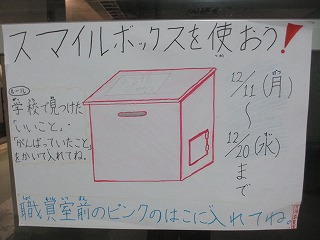 スマイルボックスを使おう!
ルール
学校で見つけた
「いいこと」・
「がんばっていたこと」
をかいて入れてね。
12/11(月)
〜
12/20(水)
まで
職員室前のピンクのはこに入れてね。